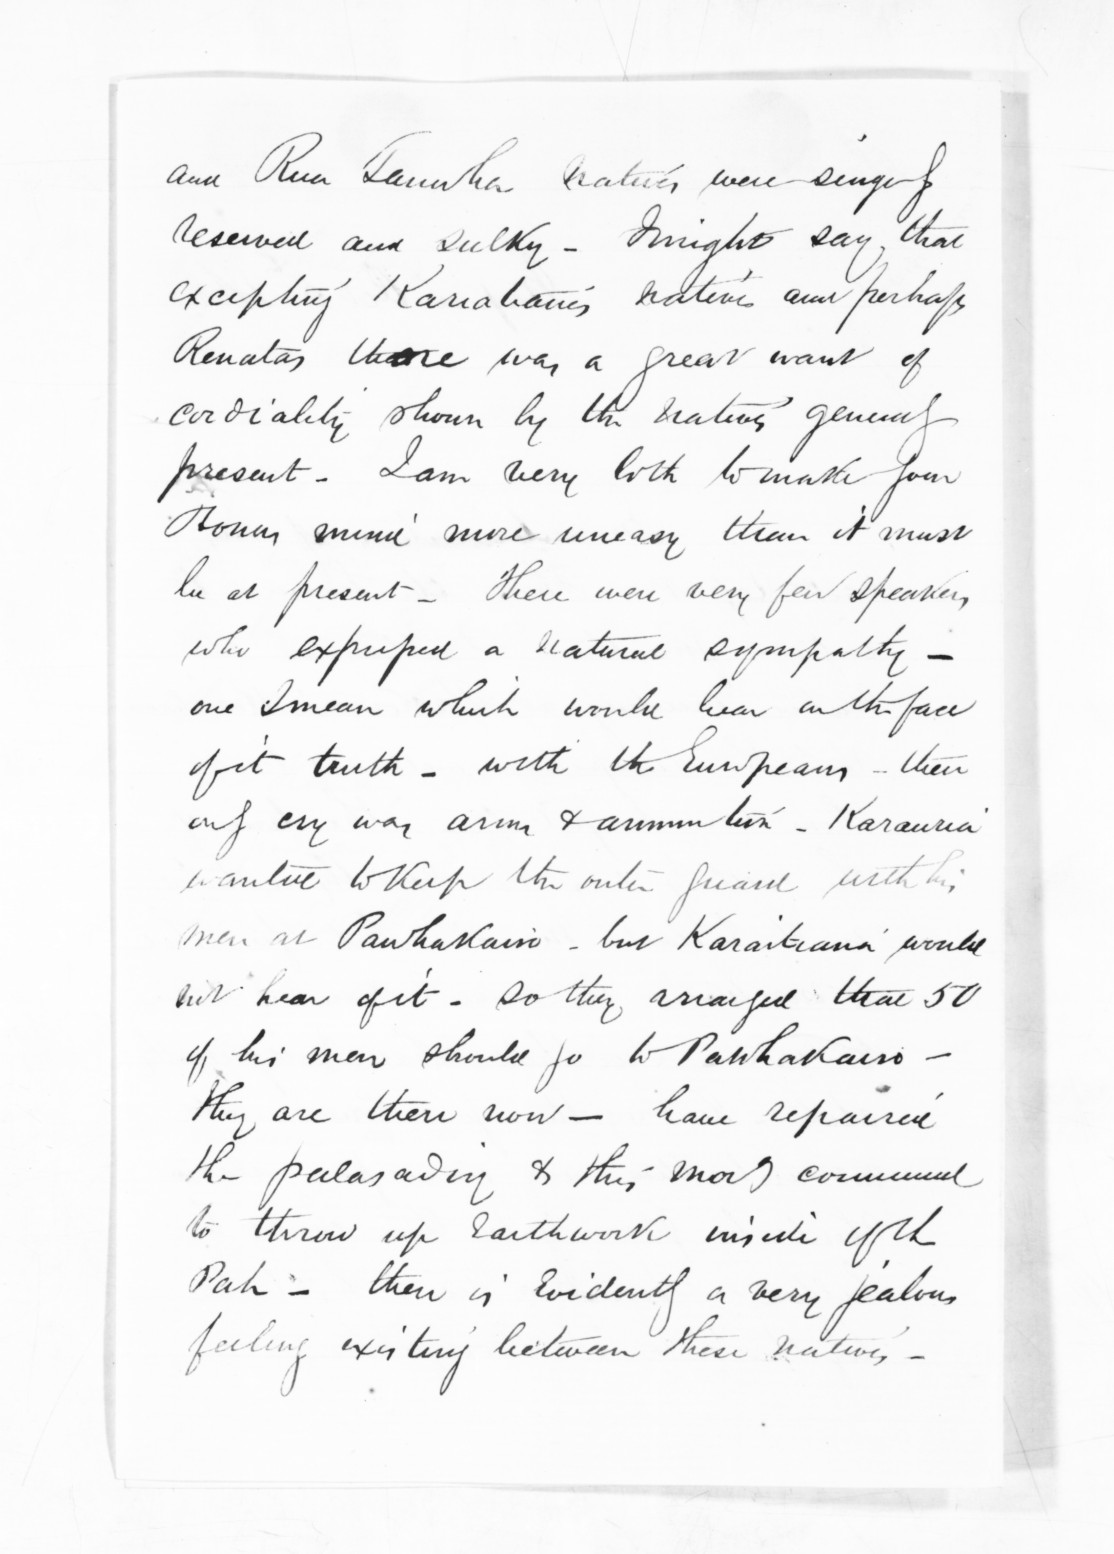 and Rua Tanuha natives were singly
reserved and sulky - I might say, that
excepting Karaitiana's natives and perhaps
Renatas there was a great want of
cordiality shown by the natives generally
present - I am very loth to make your
Honors mind more uneasy than it must
be at present - there were very few speakers
who expressed a natural sympathy -
one I mean which would bear on the face
of it truth - with the Europeans - their
only cry was arms & ammunition - Karauria
wanted to keep the outer guard with his
men at Pawhakairo - but Karaitiana would
not hear of it - so they arranged that 50
of his men should go to Pawhakairo -
they are there now - have repaired
the palasading & this mor'g commenced
to throw up Earthwork inside of the
Pah - there is Evidently a very jealous
feeling existing between these natives -